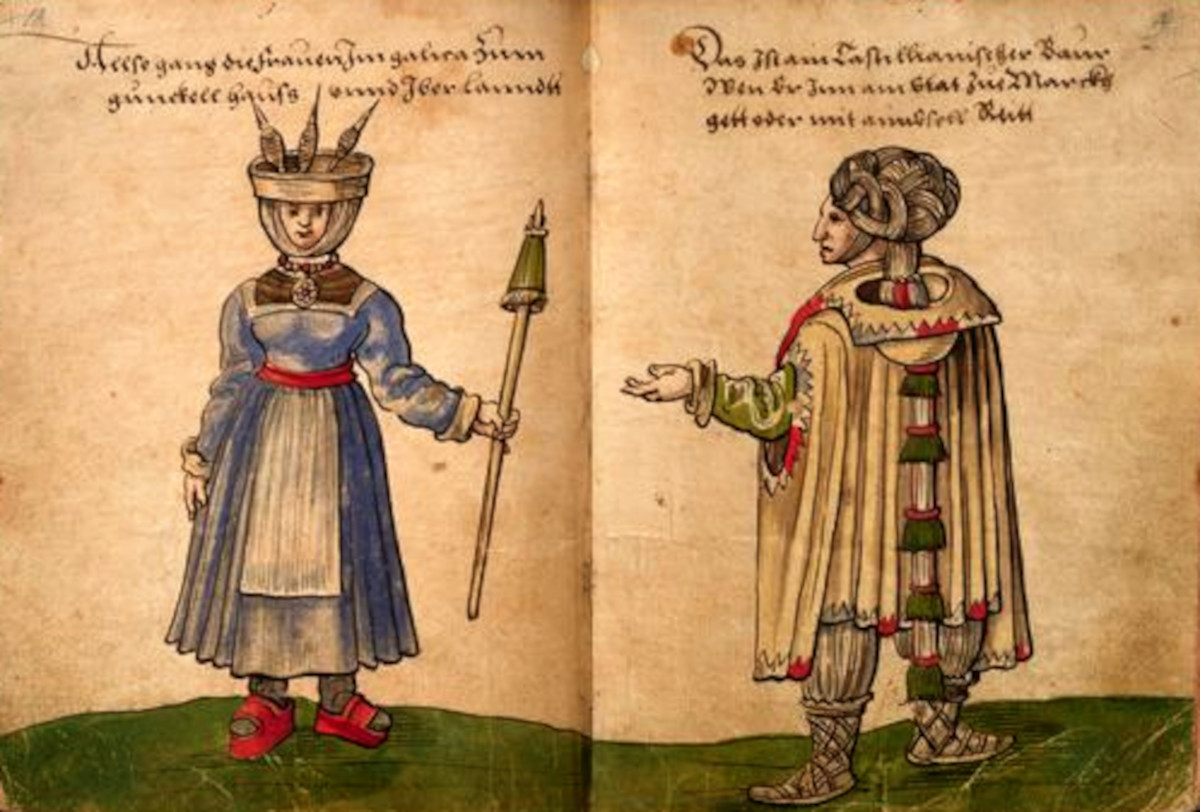 Allso gand die frauen Jm galicia Zum
gunckell hauss vnnd Jber lanndt
Das Ist ain Castillianischer Baur
Wen Er Inn ain Stat Zue Marckh
gett oder mit ainb Esell Reitt